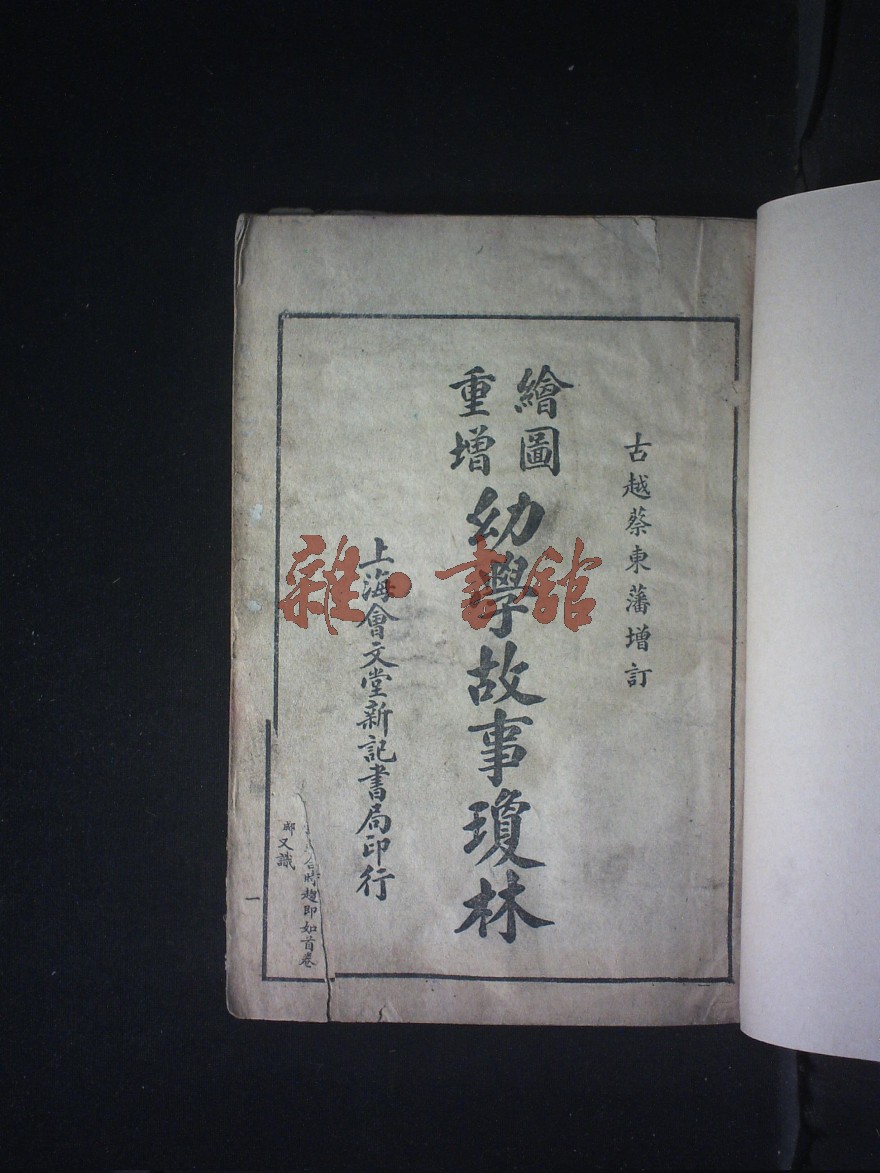 古越蔡東藩增訂
繪圖
重增
幼學故事瓊林
上海會文堂新記書局印行
時趨即如首卷
邮又識
一
雜·書館